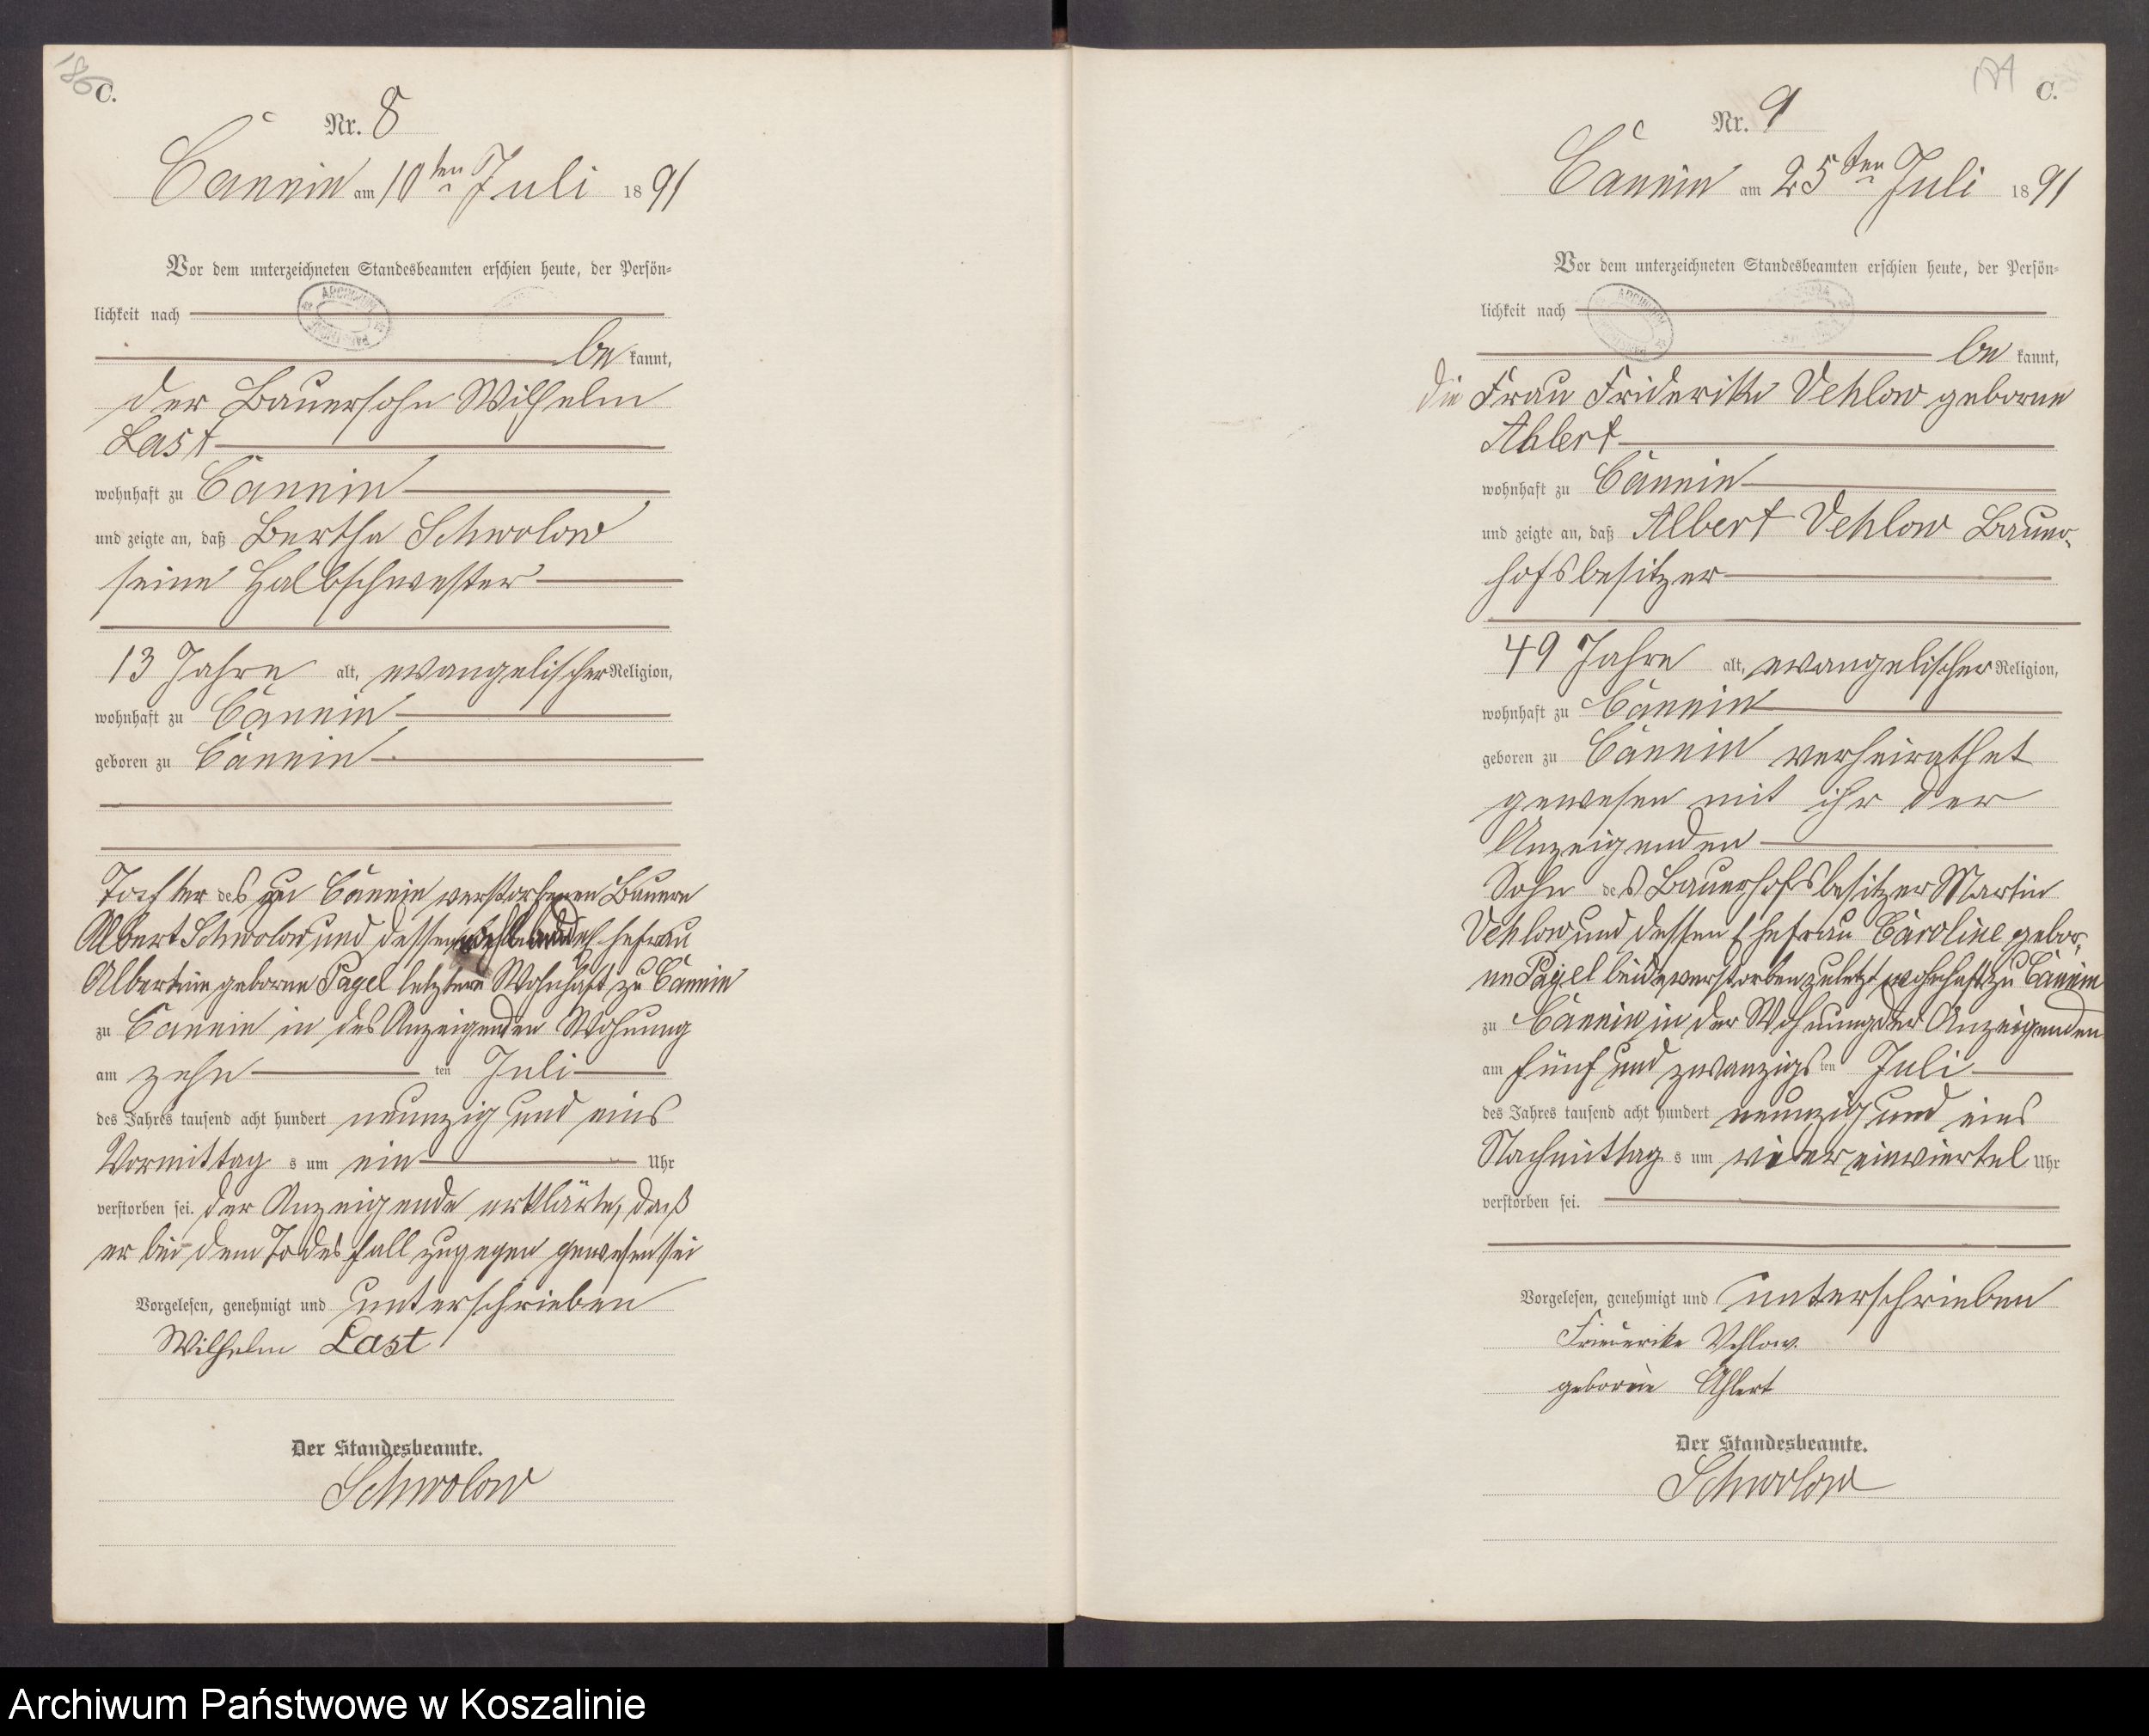 C.
Nr. 8
Cannin am 10ten Juli 1891
Vor dem unterzeichneten Standesbeamten erschien heute, der Persön-
lichkeit nach
be kannt,
der Bauersohn Wilhelm
Last
wohnhaft zu Cannin
und zeigte an, daß Bertha Schwolow
seine Halbschwester
13 Jahre alt, evangelischer Religion,
wohnhaft zu Cannin
geboren zu Cannin
Tochter des zu Cannin verstorbenen Bauern
Albert Schwolow und dessen Ehefrau
Albertine geborne Pagel letztere Wohnhaft zu Cannin
zu Cannin in des Anzeigenden Wohnung
am zehn ten Juli
des Jahres tausend acht hundert neunzig und eins
Vormittag s um ein Uhr
verstorben sei. der Anzeigende erklärte, daß
er bei dem Todesfall zugegen gewesen sei
Vorgelesen, genehmigt und unterschrieben
Wilhelm Last
Der Standesbeamte.
Schwolow
C.
Nr. 9
Cannin am 25ten Juli 1891
Vor dem unterzeichneten Standesbeamten erschien heute, der Persön-
lichkeit nach
be kannt,
die Frau Friderikke Vehlow geborne
Ahlert
wohnhaft zu Cannin
und zeigte an, daß Albert Vehlow Bauer-
hofsbesitzer
49 Jahre alt, evangelischer Religion,
wohnhaft zu Cannin
geboren zu Cannin verheirathet
gewesen mit ihr der
Anzeigenden
Sohn des Bauerhofsbesitzer Martin
Vehlow und dessen Ehefrau Caroline gebor-
ne Pagel beide verstorben zuletzt wohnhaft zu Cannin
zu Cannin in der Wohnung der Anzeigenden
am fünf und zwanzigs ten Juli
des Jahres tausend acht hundert neunzig und eins
Nachmittag s um vier einviertel Uhr
verstorben sei.
Vorgelesen, genehmigt und unterschrieben
Friederike Vehlow.
geborne Ahlert
Der Standesbeamte.
Schwolow
Archiwum Państwowe w Koszalinie